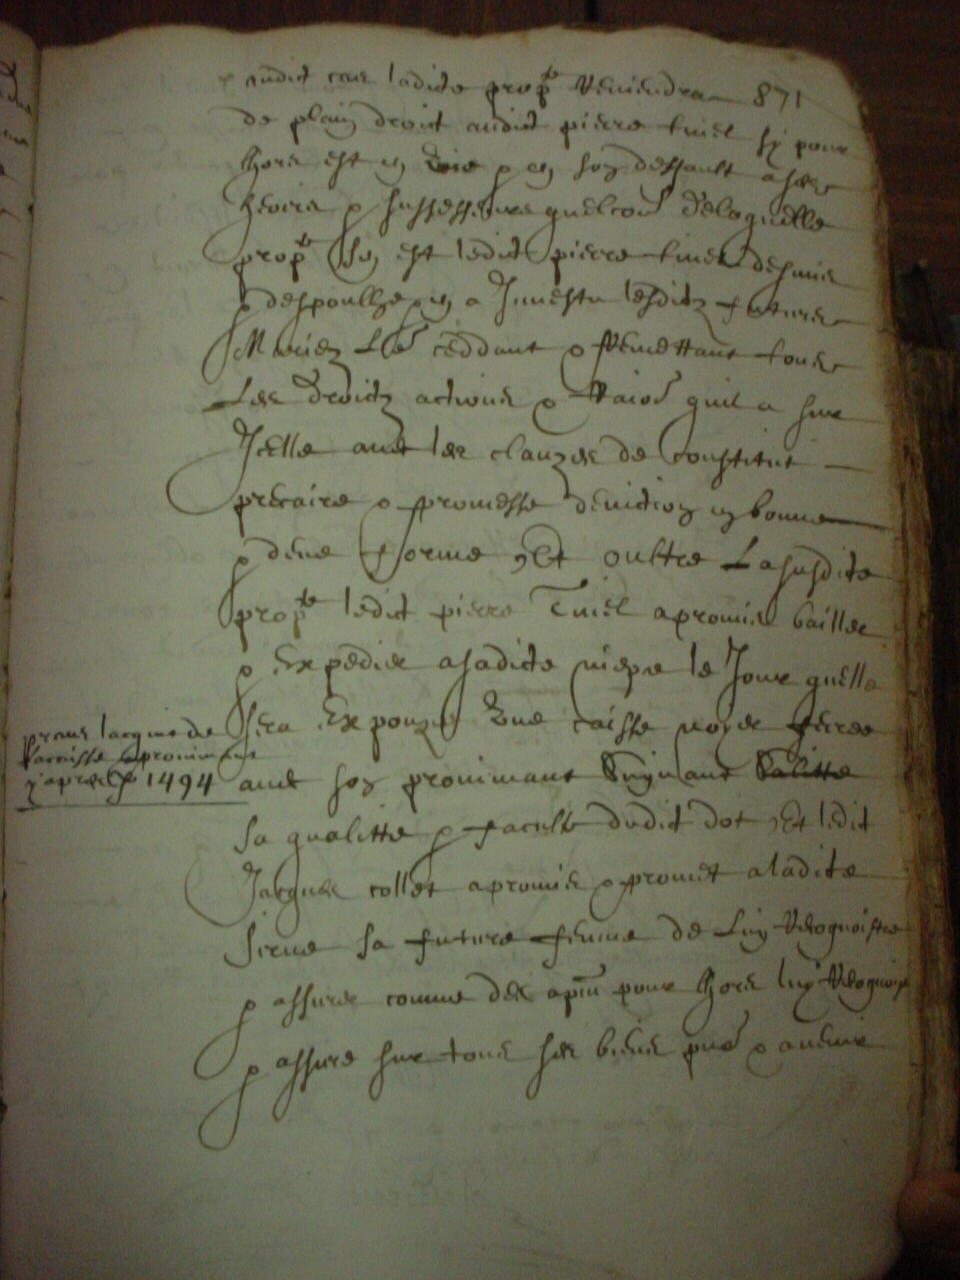 audict cas ladicte prop^te Reviendra 871
de plain droict audict pierre tinel sy pour
lhors est en vie & en son deffault a ses
heoirs & sussesseurs quelcon^s de laquelle
prop^te sen est ledict pierre tinel desmis
& despoullhe, en a Jnvestu lesditz futurs
Mariez les ceddant & Remettant tous
Les droictz actions & Raisos quil a sur
Jcelle avec les clauzes de constitut
precaire & promesse deviction en bonne
& deue forme, Et oultre La susdite
prop^te ledict pierre Tinel a promis bailler
& Expedier a sadicte niepce le Jour quelle
sera Expouzee Une caisse noyer ferree
avec son provimant suyvant
sa qualitte & faculte dudit dot, Et ledit
Jacques collet a promis & promet a ladite
sa future femme de Luy Recognoistre
& assurer comme des apnt pour lhors luy Recognoist
& assure sur tous ses biens pns & avenir
caisse & provimant
cy apres f^o 1494